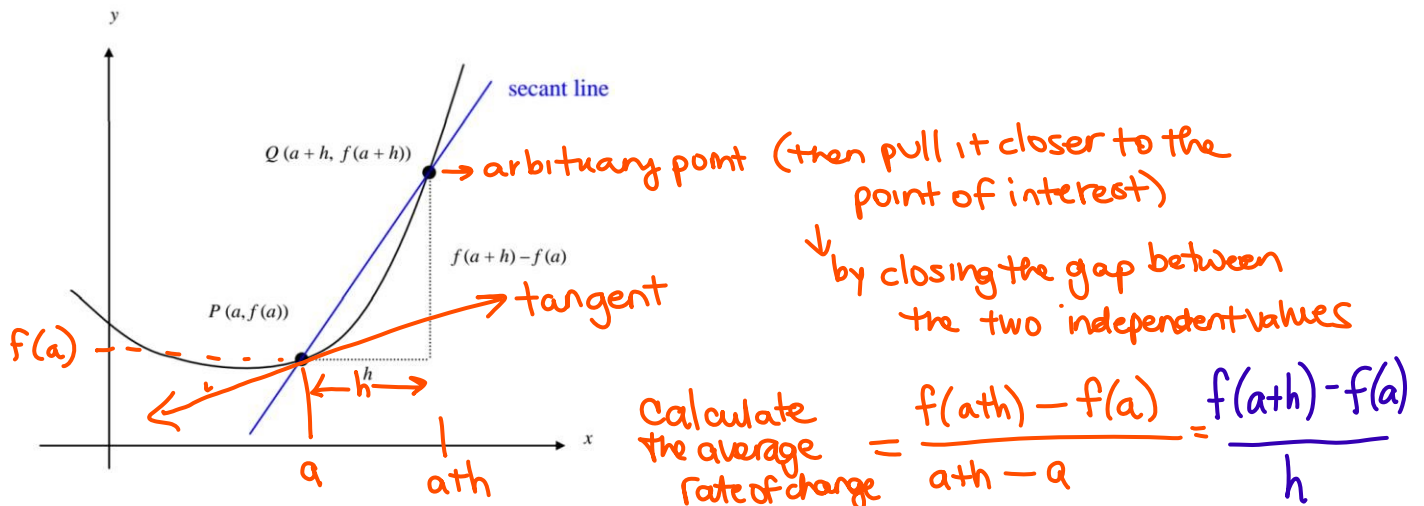 y
secant line
Q (a + h, f(a + h))
→ arbituary point (then pull it closer to the
point of interest)
↓ by closing the gap between
the two independent values
f(a + h) – f(a)
→ tangent
P (a, f(a))
f(a)
h
←h→
x
a
a+h
Calculate
the average
rate of change
= f(a+h) – f(a) / a+h – a = f(a+h) - f(a) / h